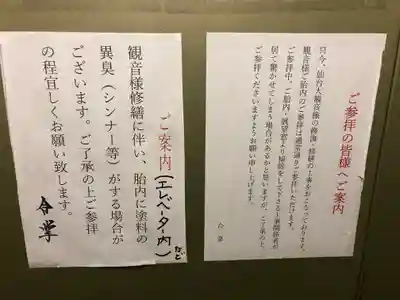 ご参拝の皆様へご案内
只今、仙台大観音様の修復・修繕の工事をおこなっております。
観音様ご胎内のご参拝は通常通りご参拝いただけます。
ご参拝中、ご胎内・展望窓より
居て驚かせてしまう場合があるかと思いますが、ご了承の上、
ご参拝くださいますようお願い申し上げます。
合掌
ご案内(エレベーター内)など
観音様修繕に伴い、胎内に塗料の
異臭(シンナー等)がする場合が
ございます。ご了承の上ご参拝
の程宜しくお願い致します。
合掌